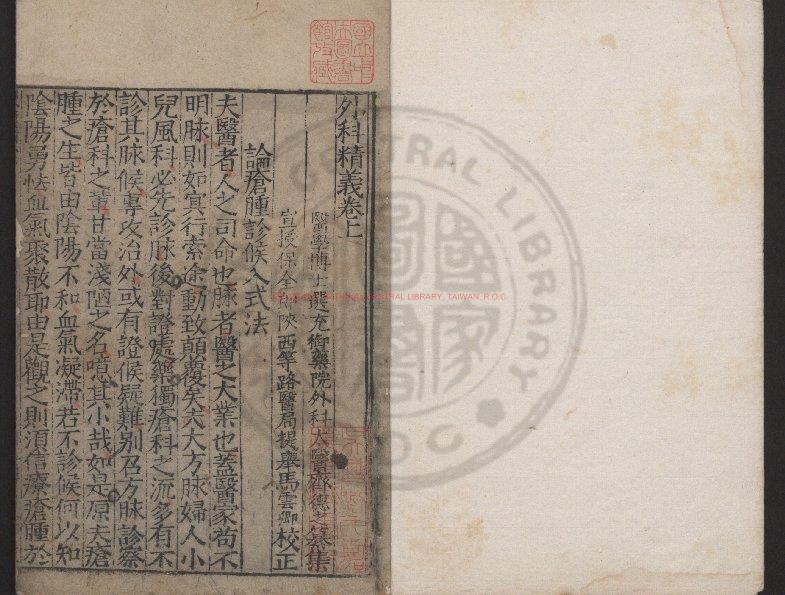 外科精義卷上
醫學博士選充御藥院外科太醫齊德之纂集
宣授保全郎陝西等路醫局提舉馬雲卿校正
論瘡腫診候入式法
夫醫者人之司命也脉者醫之大業也蓋醫家苟不
明脉則如㝠行索途動致顛覆矣夫大方脉婦人小
兒風科必先診脉後對證處藥獨瘡科之流多有不
診其脉候專攻治外或有證候疑難别召方脉診察
於瘡科之輩甘當淺陋之名噫其小哉如是原夫瘡
腫之生皆由陰陽不和血氣凝滯若不診候何以知
陰陽勇怯血氣聚散耶由是觀之則須信療瘡腫於
國立中央圖書館收藏
NATIONAL CENTRAL LIBRARY, TAIWAN, R.O.C.